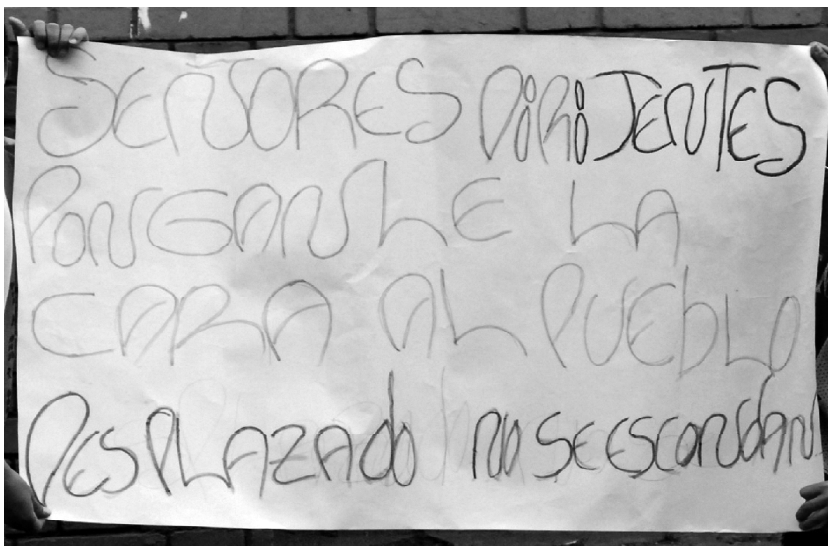 SEÑORES DIRIJENTES
PONGANLE LA
CARA AL PUEBLO
DESPLAZADO NO SE ESCONDAN